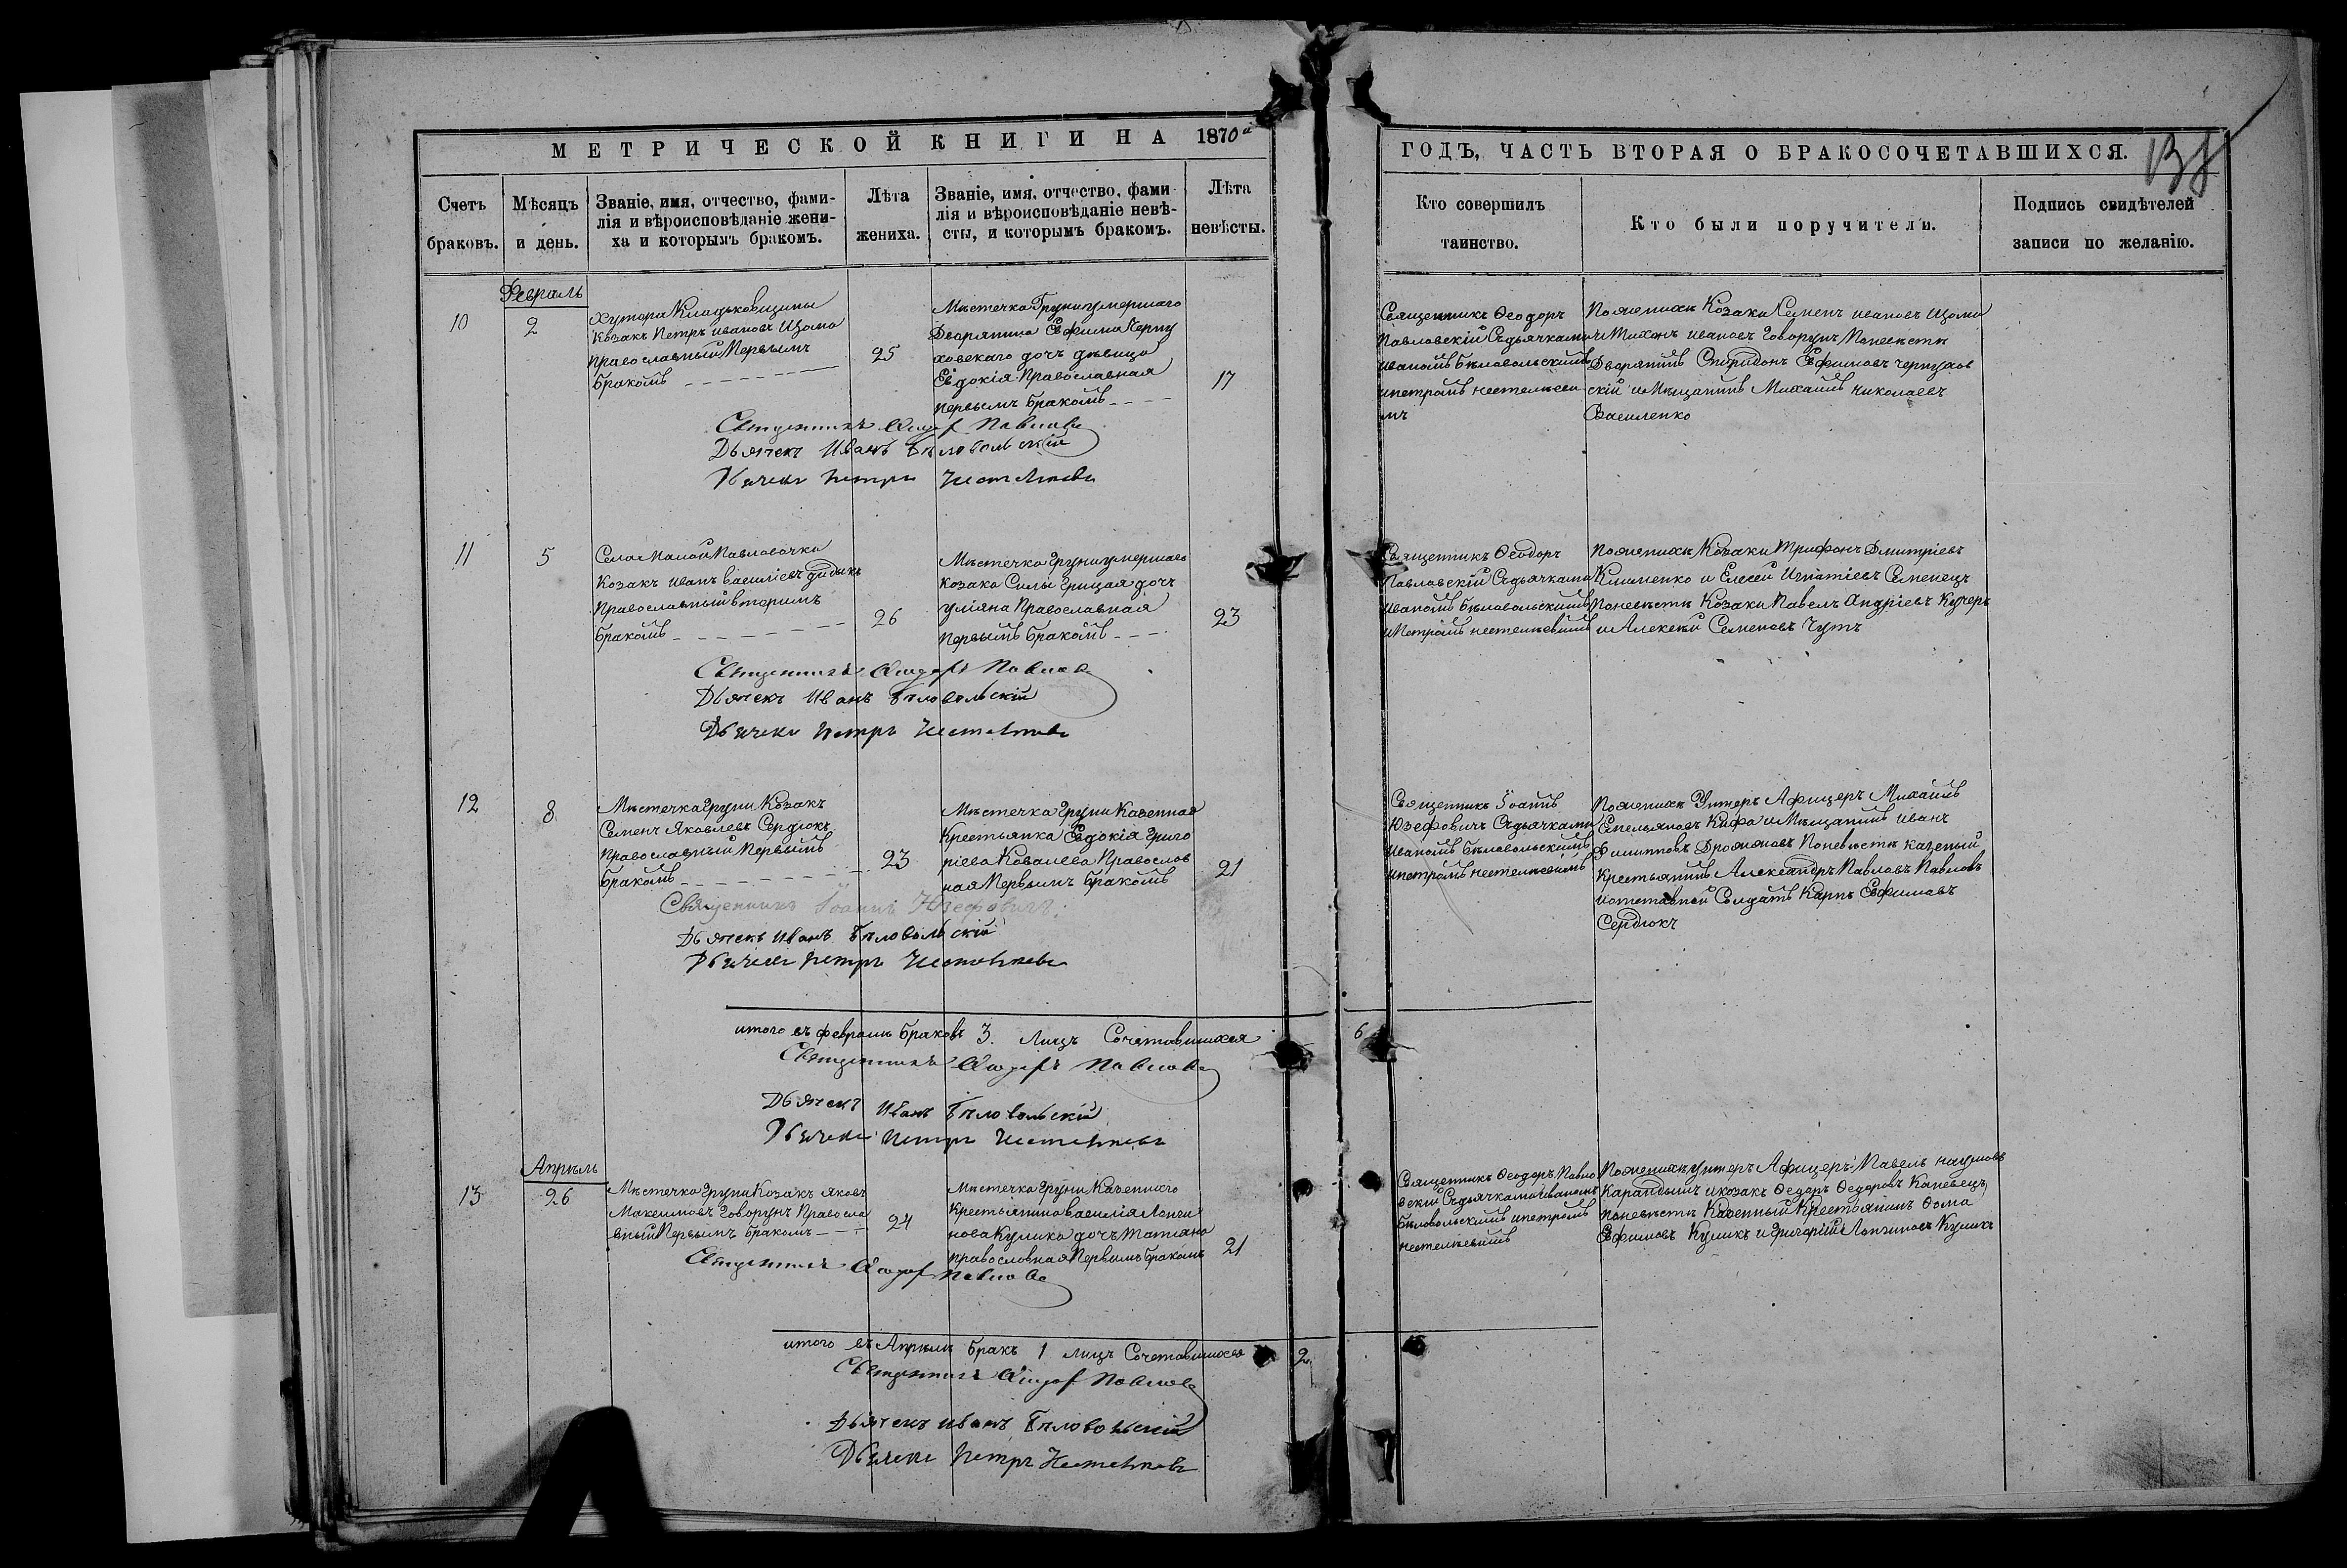 МЕТРИЧЕСКОЙ КНИГИ НА 1870й
ГОДЪ, ЧАСТЬ ВТОРАЯ О БРАКОСОЧЕТАВШИХСЯ.
Счетъ
браковъ.
Мѣсяцъ
и день.
Званіе, имя, отчество, фами-
лія и вѣроисповѣданіе жени-
ха и которымъ бракомъ.
Лѣта
жениха.
Званіе, имя, отчество, фами-
лія и вѣроисповѣданіе невѣ-
сты, и которымъ бракомъ.
Лѣта
невѣсты.
Кто совершилъ
таинство.
Кто были поручители.
Подпись свидѣтелей
записи по желанію.
Февраль
10
2
Хутора
Козакъ Петръ Ивановъ Щома
Православный Первымъ
бракомъ
25
Мѣстечка Груни умершаго
Дворянина Ефима Черну
ховскаго дочъ дѣвица
Евдокія Православная
первымъ бракомъ
17
Священникъ Ѳеодоръ
Павловскій Съдьячками
Иваномъ Бѣловольскимъ
ипетромъ нестелѣеви
мъ
Поженихѣ Козаки Семенъ Ивановъ Щома
и Ивановъ Говорунъ Поневѣстѣ
Дворянинъ Спиридонъ Ефимовъ Чернухов
скій иМѣщанинъ Михаилъ Николаевъ
Василенко
Священникъ Ѳеодоръ
Дьячекъ Иванъ Бѣловольскій
Дьячекъ Петръ
11
5
Села Малой Павловочки
Козакъ Иванъ Василіевъ
Православный вторимъ
бракомъ
26
Мѣстечка Груни умершаго
козака Силы Грицая дочъ
уліяна Православная
Первымъ бракомъ
23
Священникъ Ѳеодоръ
Павловскій Съдьячками
Иваномъ Бѣловольскимъ
иПетромъ нестелѣевимъ
Поженихѣ Козаки Трифонъ Дмитріевъ
Клименко и Елесей Игнатіевъ Семенецъ
Поневѣстѣ Козаки Павелъ Андріевъ Кучеръ
иАлексѣй Семеновъ Чутъ
Священникъ Ѳеодоръ
Дьячекъ Иванъ Бѣловольскій
Дьячекъ Петръ
12
8
Мѣстечка Груни Козакъ
Семенъ Яковлевъ Сердюкъ
Православный Первымъ
бракомъ
23
Мѣстечка Груни Казенная
Крестьянка Евдокія Григо
ріева Ковалева Православ
ная Первымъ бракомъ
21
Священникъ Іоаннъ
Юзефовичъ Съдьячками
Иваномъ Бѣловольскимъ
ипетромъ нестелѣевимъ
Поженихѣ Унтеръ Афицеръ Михаилъ
Емельяновъ Кифа иМѣщанинъ Иванъ
Филипповъ Поневѣстѣ казеный
Крестьянинъ Александръ Павловъ Павловъ
иотставной Солдатъ Карпъ Ефимовъ
Сердюкъ
Священникъ Іоаннъ Юзефовичъ
Дьячекъ Иванъ Бѣловольскій
Дьячекъ Петръ
итого въ февралѣ браковъ 3. Лицъ Сочетавшихся 6
Священникъ Ѳеодоръ
Дьячекъ Иванъ Бѣловольскій
Дьячекъ Петръ
Апрѣль
13
26
Мѣстечка Груни Козакъ Яковъ
Максимовъ Говорунъ Правосла
вный Первымъ бракомъ
24
Мѣстечка Груни Казеннаго
Крестьянина василія Лонги
нова Кулика дочъ Татіана
православная Первымъ бракомъ
21
Священникъ Ѳеодоръ Павло
вскій Съдьячками Иваномъ
Бѣловольскимъ ипетромъ
нестелѣевимъ
Поженихѣ унтеръ Афицеръ Павелъ Наумовъ
Карандышъ икозакъ Ѳедоръ Ѳедоровъ Каневецъ,
поневѣстѣ Казенный Крестьянинъ Ѳома
Ефимовъ Куликъ и Григорій Лонгиновъ Куликъ
Священникъ Ѳеодоръ
итого въ Апрѣлѣ бракъ 1 лицъ Сочетавшихся 2.
Священникъ Ѳеодоръ
Дьячекъ Иванъ Бѣловольскій
Дьячекъ Петръ